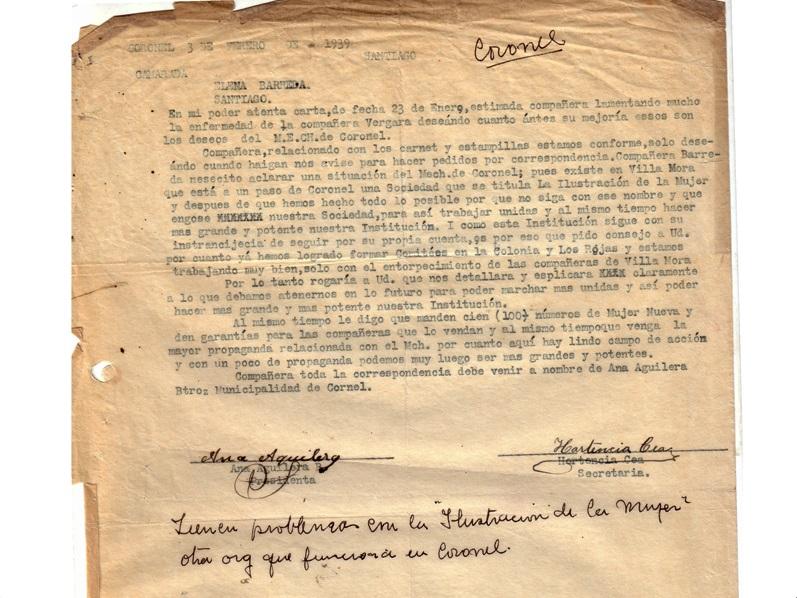 CORONEL 3 DE FEBRERO DE 1939
Coronel
SANTIAGO
CAMARADA
ELENA BARREDA.
SANTIAGO.
En mi poder atenta carta,de fecha 23 de Enero,estimada compañera lamentando mucho
la enfermedad de la compañera Vergara deseándo cuanto ántes su mejoría essos son
los deseos del M.E.CH.de Coronel.
Compañera,relacionado con los carnet y estampillas estamos conforme,solo dese-
ándo cuando haigan nos avise para hacer pedidos por correspondencia.Compañera Barre-
da nessecito aclarar una situación del Mech.de Coronel; pues existe en Villa Mora
que está a un paso de Coronel una Sociedad que se titula La Ilustración de la Mujer
y despues de que hemos hecho todo lo posible por que no siga con ese nombre y que
engose XXXXXXX nuestra Sociedad,para así trabajar unidas y al mismo tiempo hacer
mas grande y potente nuestra Institución. I como esta Institución sigue con su
instrancijecia de seguir por su propia cuenta,es por eso que pido consejo a Ud.
por cuanto yá hemos logrado formar Comitées en la Colonia y Los Rójas y estamos
trabajando muy bien,solo con el entorpecimiento de las compañeras de Villa Mora
Por lo tanto rogaría a Ud. que nos detallara y esplicara XXXX claramente
a lo que debamos atenernos en lo futuro para poder marchar mas unidas y así poder
hacer mas grande y mas potente nuestra Institución.
Al mismo tiempo le digo que manden cien (100) números de Mujer Nueva y
den garantías para las compañeras que lo vendan y al mismo tiempoque venga la
mayor propaganda relacionada con el Mch. por cuanto aquí hay lindo campo de acción
y con un poco de propaganda podemos muy luego ser mas grandes y potentes.
Compañera toda la correspondencia debe venir a nombre de Ana Aguilera
Btroz Municipalidad de Cornel.
Ana Aguilera
Hortencia Cea
Ana Aguilera B.
Hortencia Cea
Presidenta
Secretaria.
Tienen problemas con la "Ilustracion de la Mujer"
otra org que funciona en Coronel.